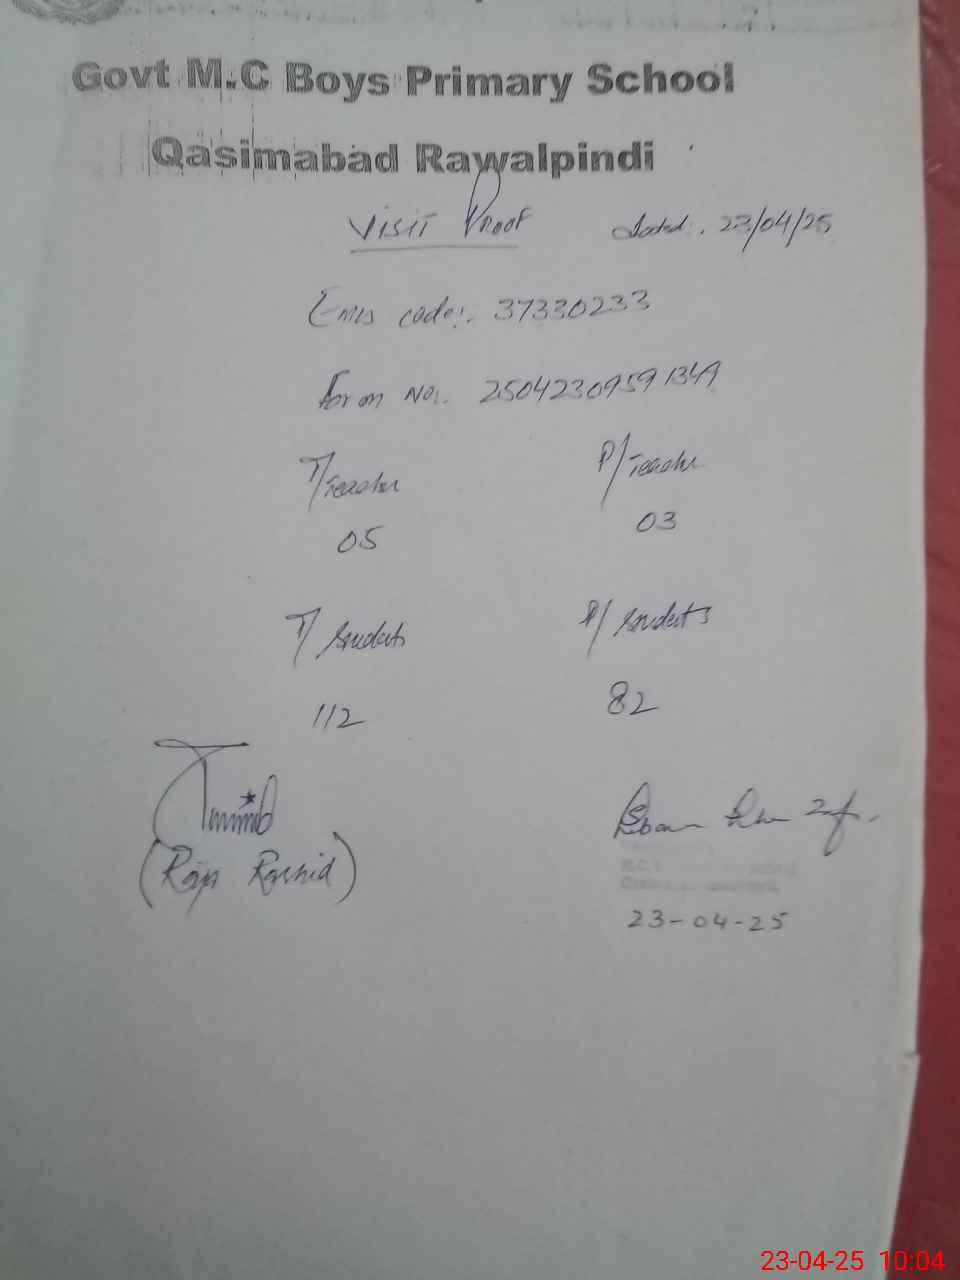 Govt M.C Boys Primary School
Qasimabad Rawalpindi
Visit Proof Dated: 23/04/25
Emis code:. 37330233
Form No:. 25042309591349
T/Teacher P/Teacher
05 03
T/Students P/Students
112 82
(Raja Rashid)
23-04-25
23-04-25 10:04